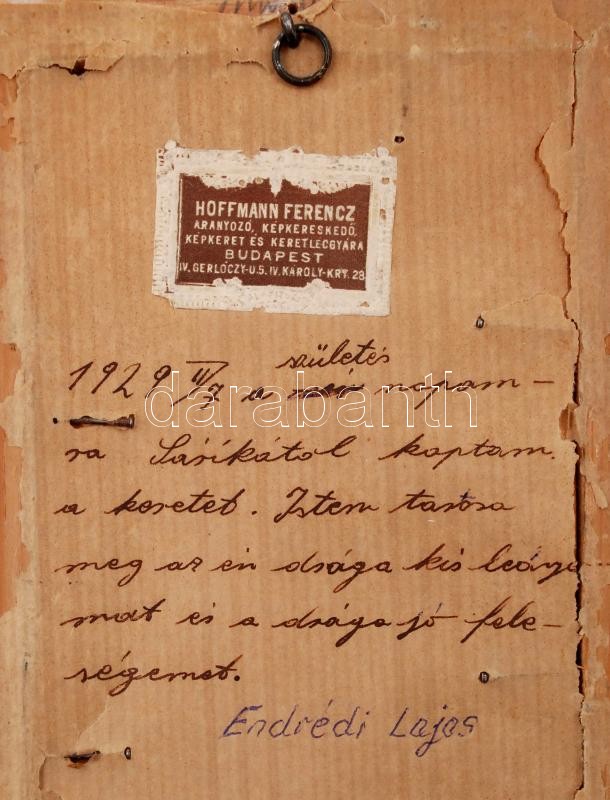 HOFFMANN FERENCZ
ARANYOZÓ, KÉPKERESKEDŐ,
KÉPKERET ÉS KERETLÉCGYÁRA
BUDAPEST
IV. GERLÓCZY-U.5. IV. KÁROLY-KRT. 28
születés
1929 III/7 a napam-
ra Sárikától kaptam
a keretet. Isten tartsa
meg az én drága kis leánya-
mat és a drága jó fele-
ségemet.
Endrédi Lajos
darabanth